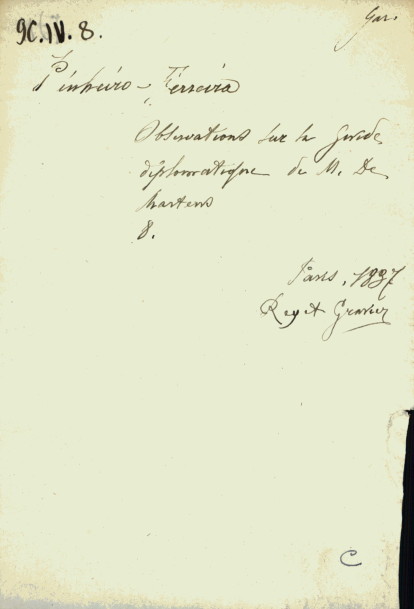 9C.IV.8.
Gar.
Pinheiro-Ferreira
Observations sur la Guide
diplomatique de M. De
Martens
8.
Paris, 1837
Rey et Gravier
C